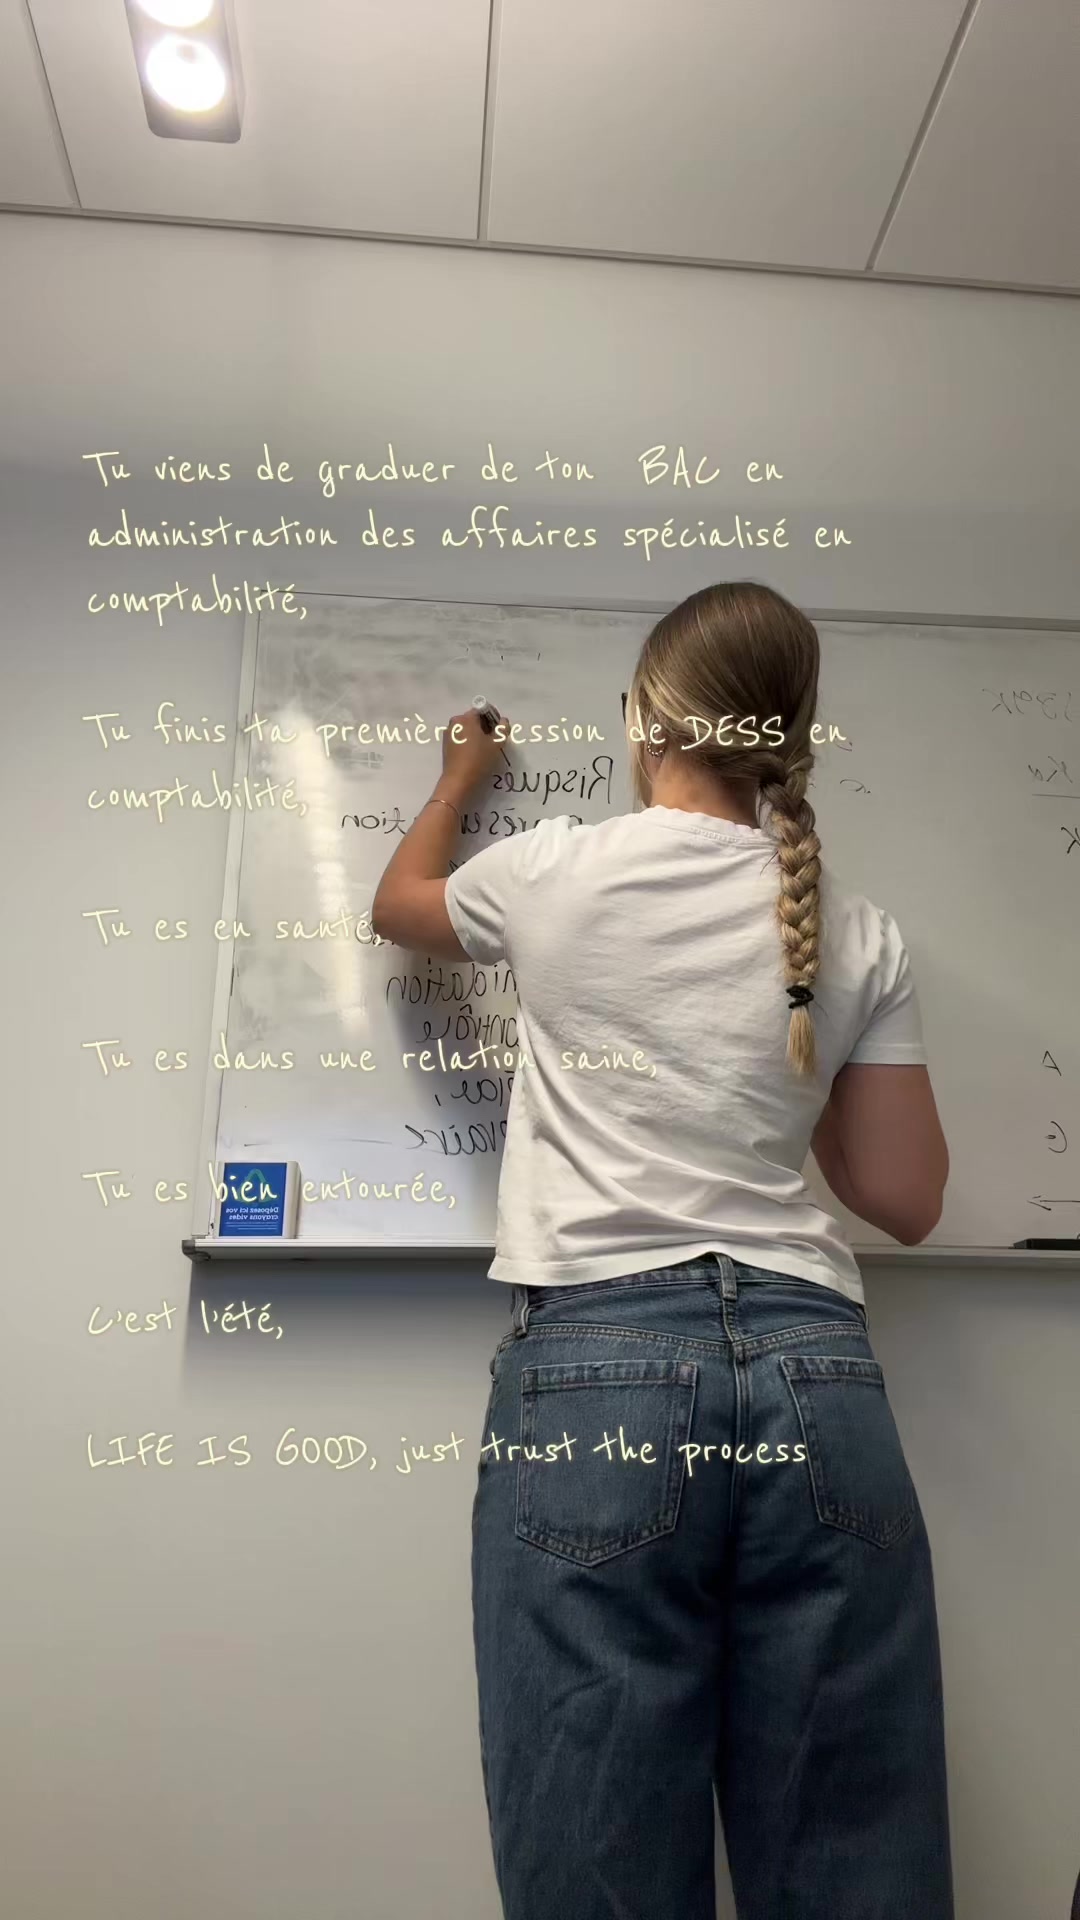 Tu viens de graduer de ton BAC en
administration des affaires spécialisé en
comptabilité,
Tu finis ta première session de DESS en
comptabilité,
Tu es en santé,
Tu es dans une relation saine,
Tu es bien entourée,
C'est l'été,
LIFE IS GOOD, just trust the process
Risques
contrôle
Déposez ici vos
crayons vides